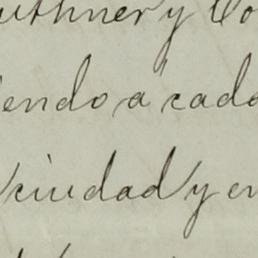 uthner y Co
iendo a cada
ciudad y en